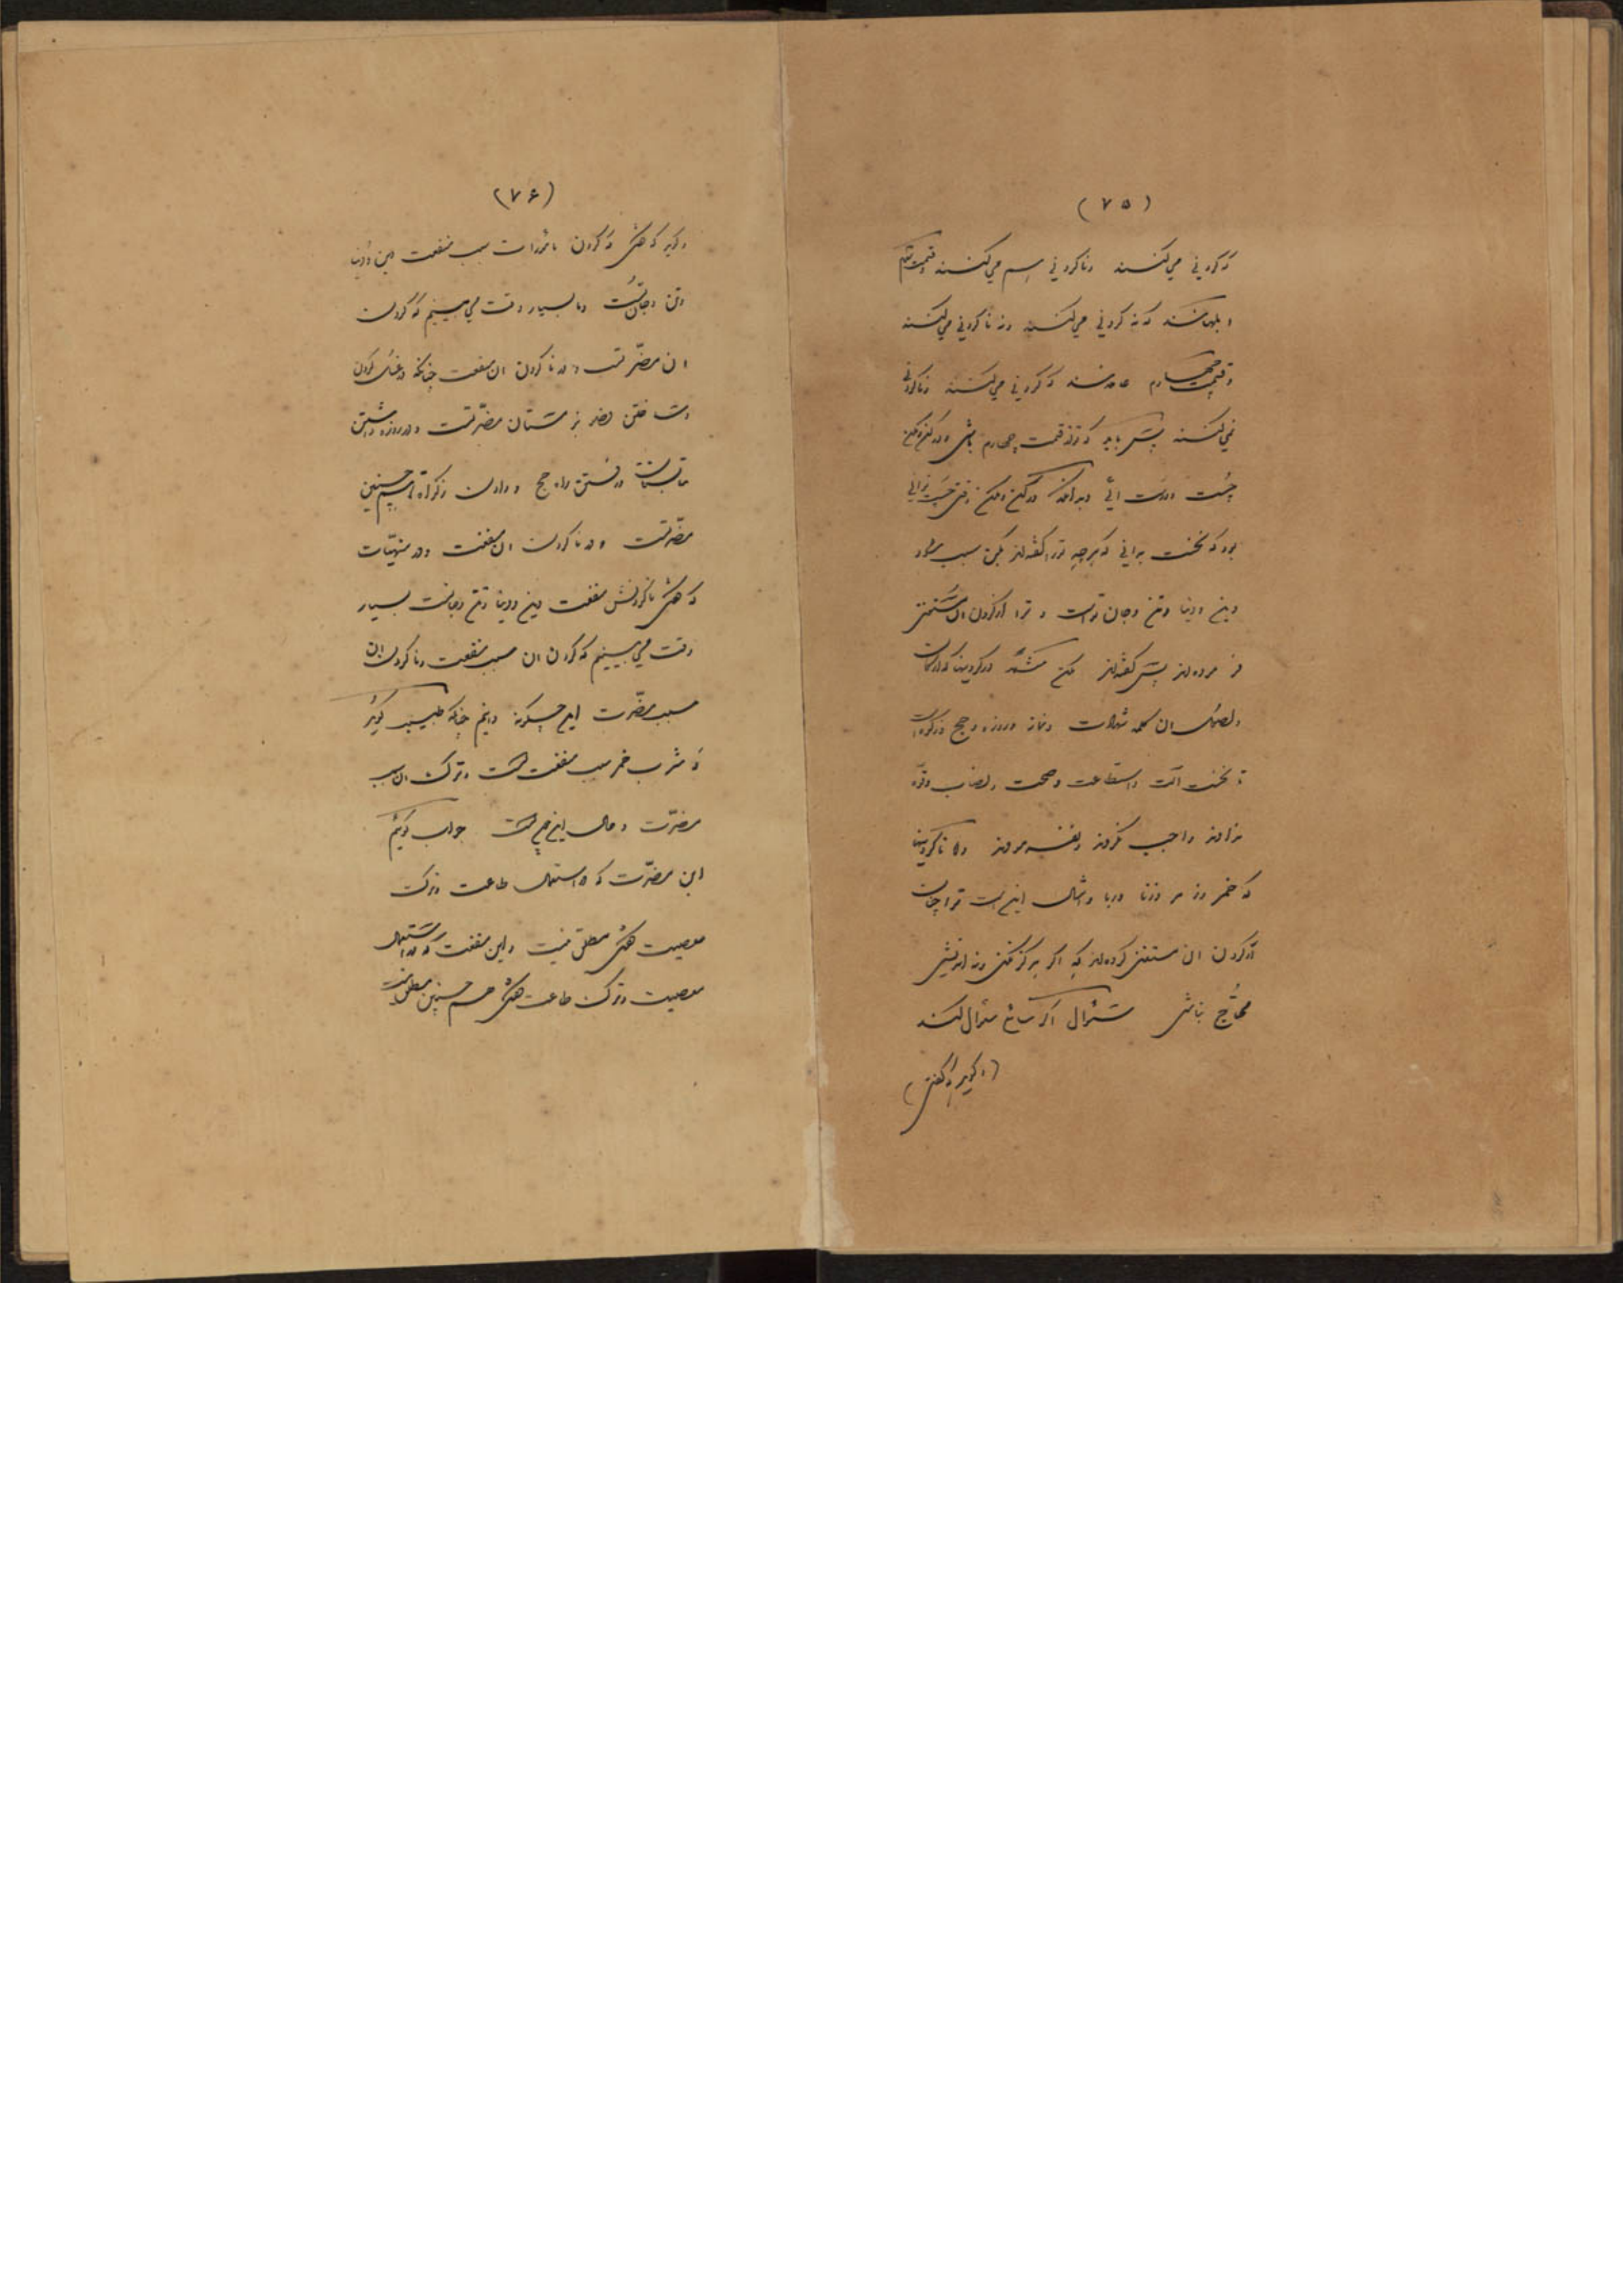 (۷۵)
که کردنی میکنند و ناکردنی هم میکنند و قسمت سیم
ابلهانند که نه کردنی میکنند و نه ناکردنی میکنند
و قسمت چهارم که کردنی میکنند و ناکردنی
نمیکنند پس باید که تو از قسمت چهارم باشی و در کن و مکن
چست و درست آئی و بدانکه در کن و مکن وقتی توانی
بود که نخست بدانی که هرچه ترا گفته‌اند بکن سبب
دین و دنیا و تن و جان تو است و ترا از کردن آن
فرموده‌اند پس گفته‌اند مکن در کردنیها که ارکانست
و اصول آن کلمه شهادت و نماز و روزه و حج و زکوة است
تا نخست آلت و استطاعت و صحت و نصاب و قوة
نداوند واجب نکردند و نفرمودند و در ناکردنیها
که خمر و زمر و زنا و ربا و امثال این است ترا چنان
از کردن آن مستغنی کرده‌اند که اگر هرگز نکنی و نه اندیشی
محتاج نباشی سئوال اگر سائلی سئوال کند
(و گوید که گفتی)
(۷۶)
و گوید که کردن مأمورات سبب منفعت دین و دنیا
و تن و جان است و ما بسیار وقت می‌بینیم که کردن
آن مضرتست و در ناکردن آن منفعت چنانکه در غسل کردن
و ساختن وضو بزمستان مضرتست و در روزه داشتن
تابستان و رفتن راه حج و دادن زکوة هم چنین
مضرتست و در ناکردن آن منفعت و در منهیات
که ناکردنش منفعت دین و دنیا و تن و جانست بسیار
وقت می‌بینیم که کردن آن سبب منفعت و ناکردن آن
سبب مضرت این چگونه دانیم چنانکه طبیب گوید
که شرب خمر سبب منفعت است و ترک آن سبب
مضرت و حال این چیست جواب گوئیم
این مضرت که در استعمال طاعت و ترک
معصیت مطلق نیست و این منفعت که در استعمال
معصیت و ترک طاعت هم چنین مطلق نیست